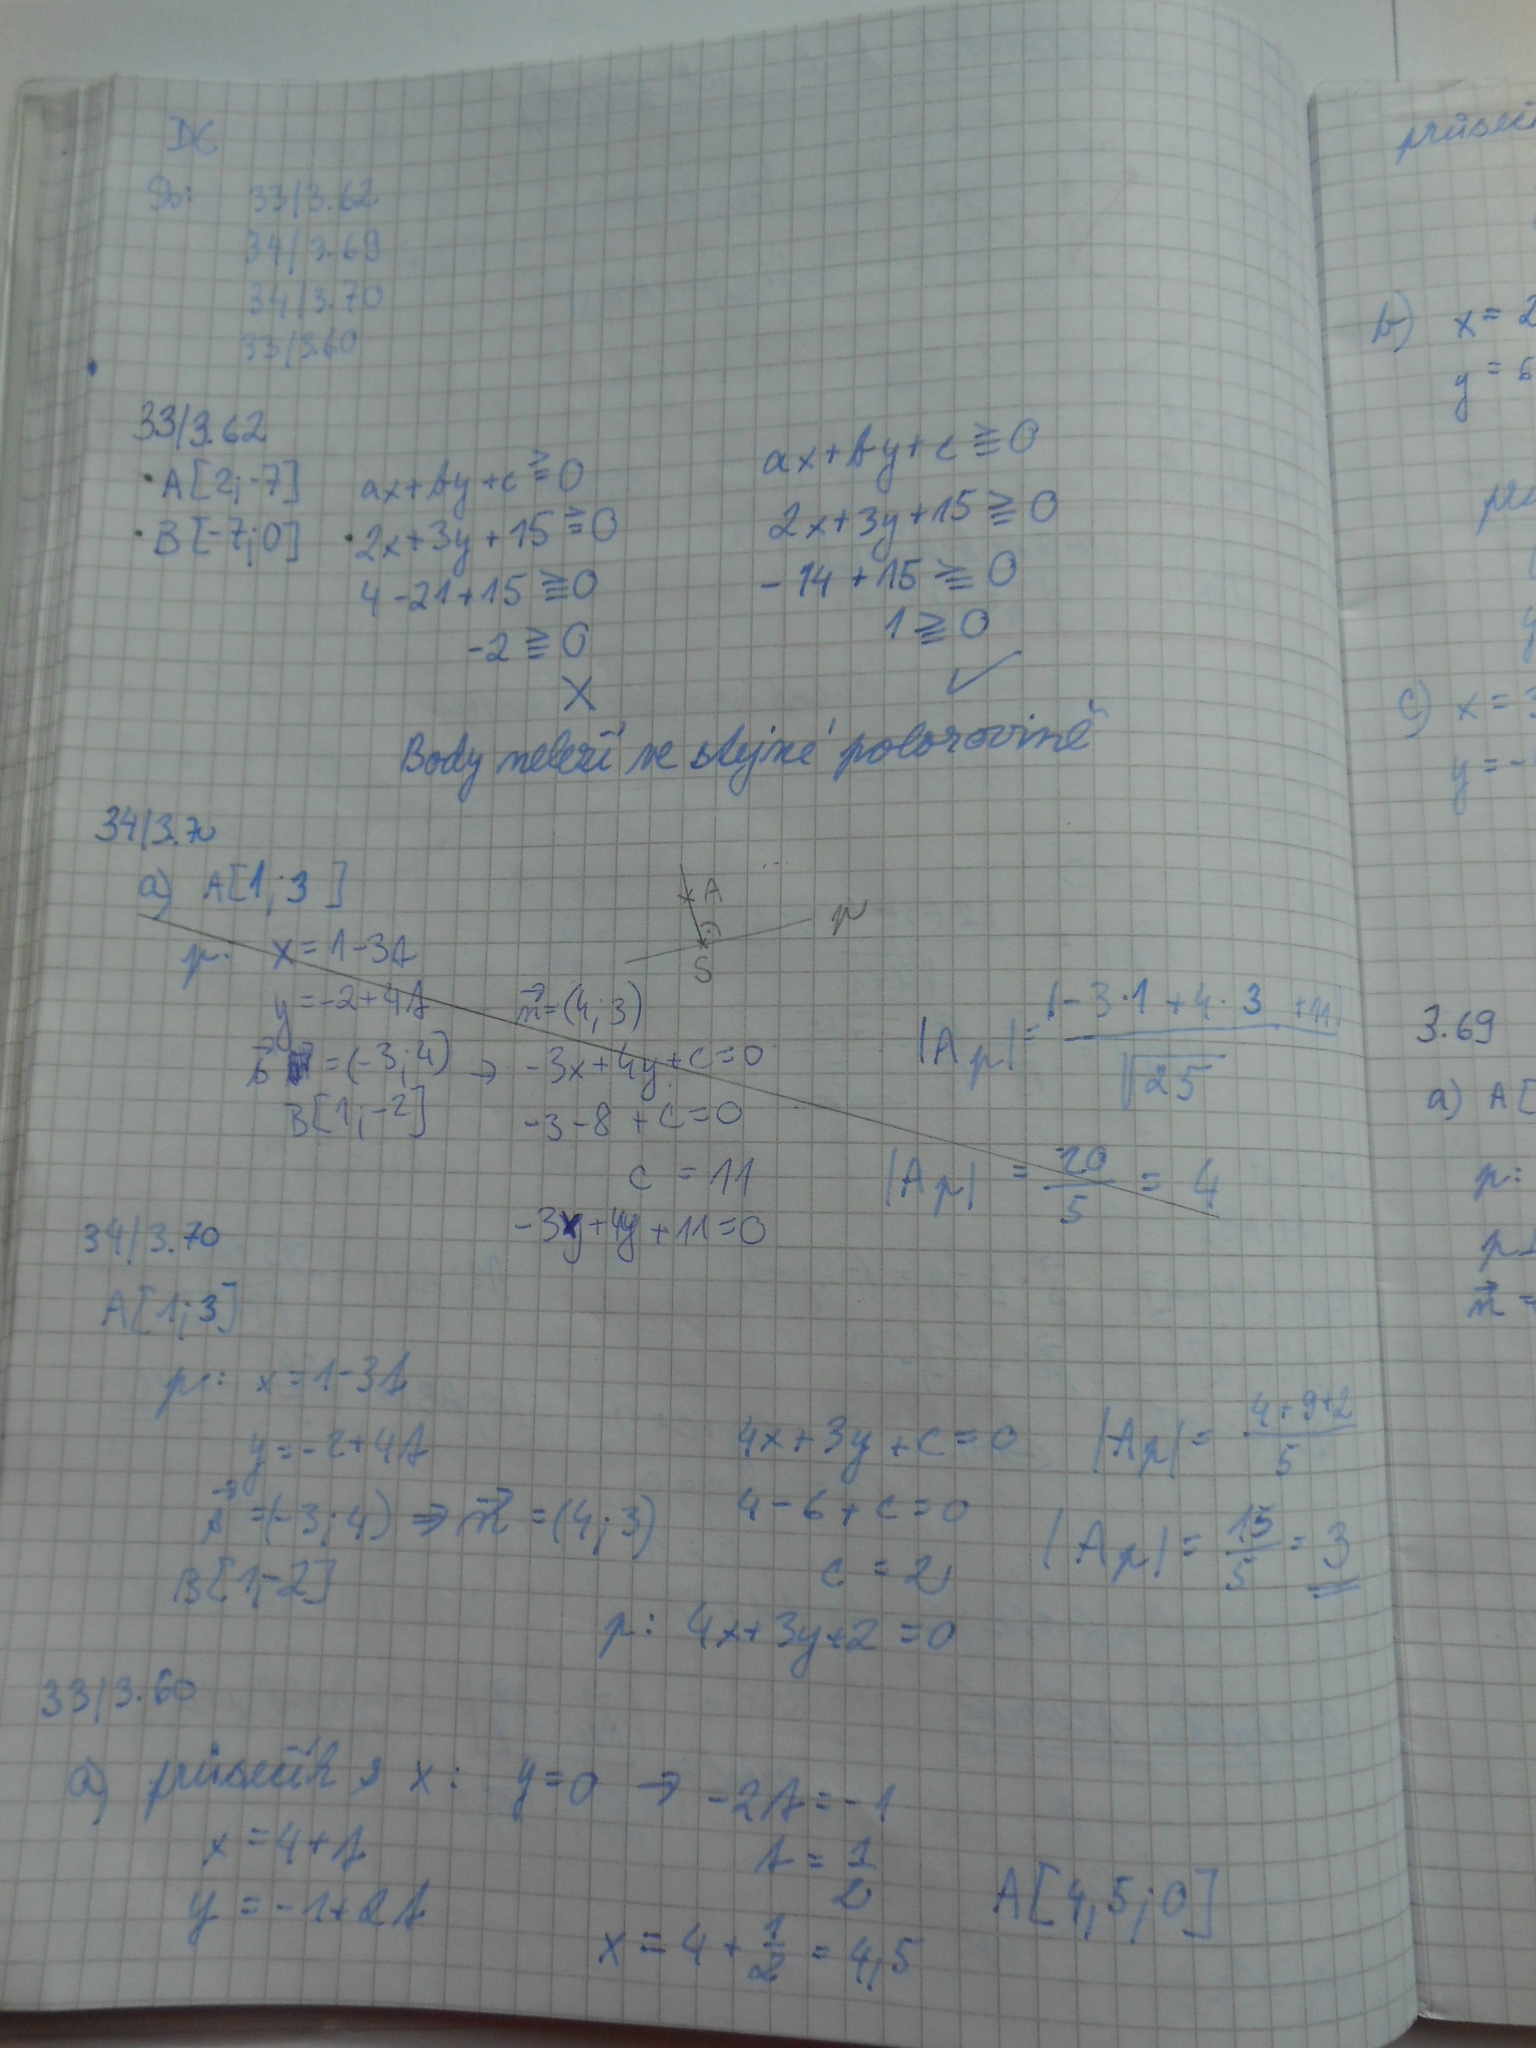 DC
Do: 33/3.62
34/3.69
34/3.70
33/3.60
33/3.62
A[2;-7] ax+by+c≧0
B[-7;0] 2x+3y+15≧0
4-21+15≧0
-2≧0
X
ax+by+c≧0
2x+3y+15≧0
-14+15≧0
1≧0
✓
Body neleží ve stejné polorovině
34/3.70
a) A[1;3]
p: x=1-3t
y=-2+4t
s⃗=(-3;4) →
B[1;-2]
n⃗=(4;3)
-3x+4y+c=0
-3-8+c=0
c=11
-3x+4y+11=0
A
p
S
|Ap|=|-3·1+4·3+11|/√25
|Ap|=20/5=4
34/3.70
A[1;3]
p: x=1-3t
y=-2+4t
s⃗=(-3;4) ⇒ n⃗=(4;3)
B[1;-2]
4x+3y+c=0
4-6+c=0
c=2
p: 4x+3y+2=0
|Ap|=4+9+2/5
|Ap|=15/5=3
33/3.60
a) průsečík s x: y=0 → -2t=-1
x=4+t
y=-1+2t
t=1/2
x=4+1/2=4,5
A[4,5;0]
b) x=2
y=6
c) x=3
y=-
3.69
a) A[
p:
n⃗=